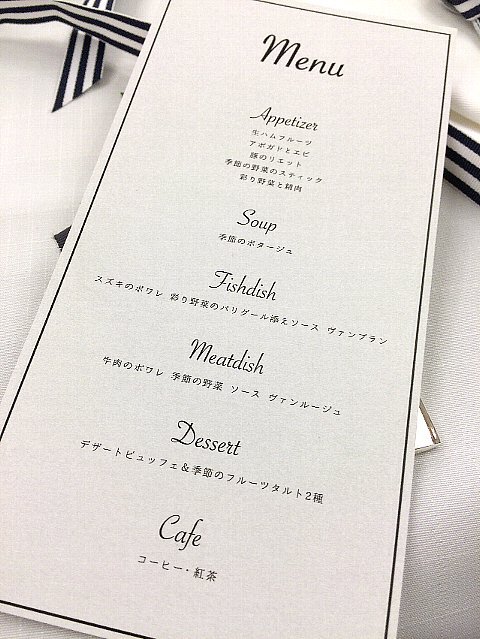 Menu
Appetizer
生ハムフルーツ
アボガドとエビ
豚のリエット
季節の野菜のスティック
彩り野菜と鶏肉
Soup
季節のポタージュ
Fishdish
スズキのポワレ 彩り野菜のバリグール添えソース ヴァンブラン
Meatdish
牛肉のポワレ 季節の野菜 ソース ヴァンルージュ
Dessert
デザートビュッフェ&季節のフルーツタルト2種
Cafe
コーヒー・紅茶